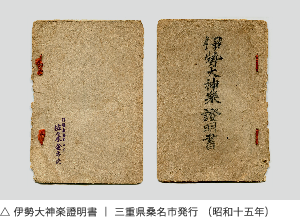 伊勢大神楽 證明書
△ 伊勢大神楽證明書 | 三重県桑名市発行 (昭和十五年)